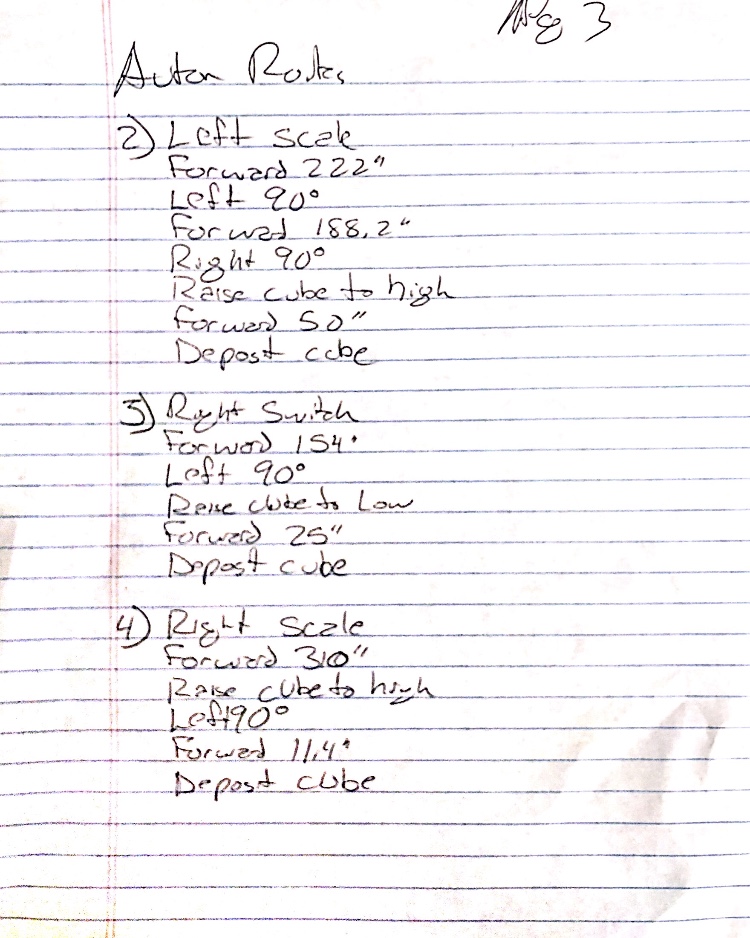 Pg 3
Auton Routes
2) Left scale
Forward 222"
Left 90°
Forward 188.2"
Right 90°
Raise cube to high
Forward 50"
Deposit cube
3) Right Switch
Forward 154"
Left 90°
Raise cube to Low
Forward 25"
Deposit cube
4) Right Scale
Forward 310"
Raise cube to high
Left 90°
Forward 11.4"
Deposit cube